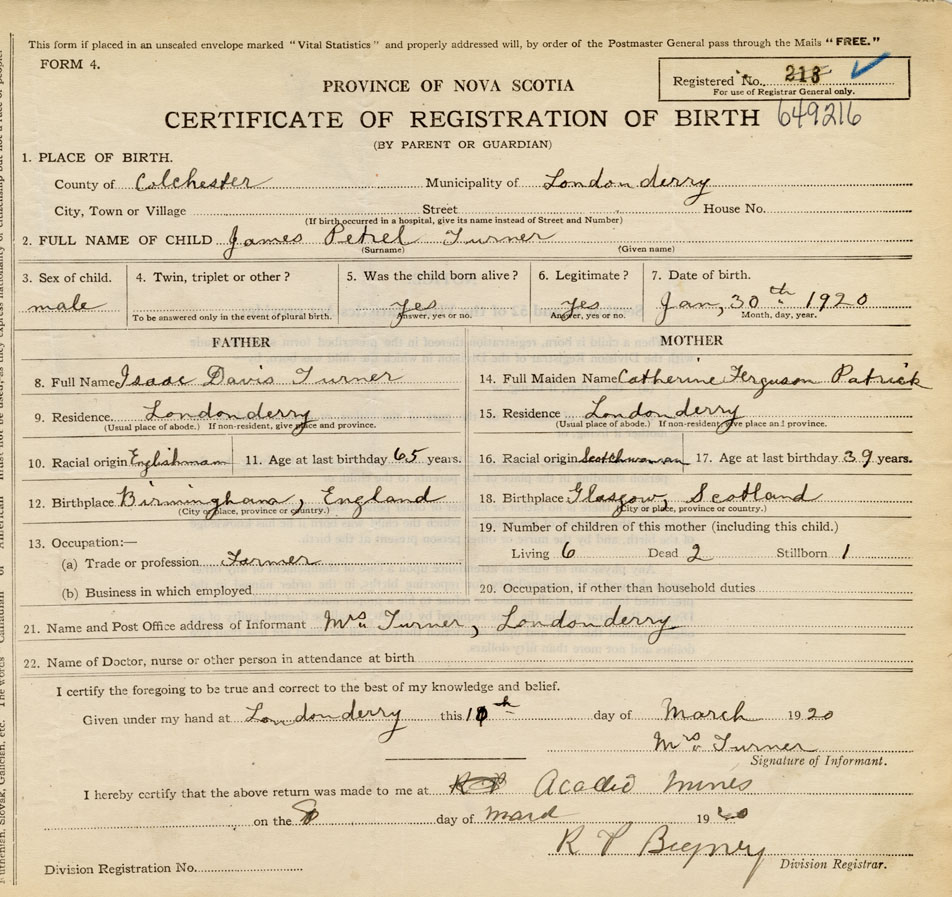 This form if placed in an unsealed envelope marked "Vital Statistics" and properly addressed will, by order of the Postmaster General pass through the Mails "FREE."
FORM 4.
Registered No. 213
For use of Registrar General only.
PROVINCE OF NOVA SCOTIA
CERTIFICATE OF REGISTRATION OF BIRTH 649216
(BY PARENT OR GUARDIAN)
1. PLACE OF BIRTH.
County of Colchester Municipality of Londonderry
City, Town or Village Street House No.
(If birth occurred in a hospital, give its name instead of Street and Number)
2. FULL NAME OF CHILD James Petrel Turner
(Surname) (Given name)
3. Sex of child. 4. Twin, triplet or other? 5. Was the child born alive? 6. Legitimate? 7. Date of birth.
male yes yes Jan, 30th 1920
To be answered only in the event of plural birth. Answer, yes or no. Answer, yes or no. Month, day, year.
FATHER MOTHER
8. Full Name Isaac Davis Turner 14. Full Maiden Name Catherine Ferguson Patrick
9. Residence. Londonderry 15. Residence Londonderry
(Usual place of abode.) If non-resident, give place and province. (Usual place of abode.) If non-resident, give place and province.
10. Racial origin Englishman 11. Age at last birthday 65 years. 16. Racial origin Scotchwoman 17. Age at last birthday 39 years.
12. Birthplace Birmingham, England 18. Birthplace Glasgow, Scotland
(City or place, province or country.) (City or place, province or country.)
13. Occupation:— 19. Number of children of this mother (including this child.)
(a) Trade or profession Farmer Living 6 Dead 2 Stillborn 1
(b) Business in which employed 20. Occupation, if other than household duties
21. Name and Post Office address of Informant Mrs Turner, Londonderry
22. Name of Doctor, nurse or other person in attendance at birth
I certify the foregoing to be true and correct to the best of my knowledge and belief.
Given under my hand at Londonderry this 10th day of March 1920
Mrs Turner
Signature of Informant.
I hereby certify that the above return was made to me at Acadia Mines
on the day of 19
R P
Division Registration No. Division Registrar.